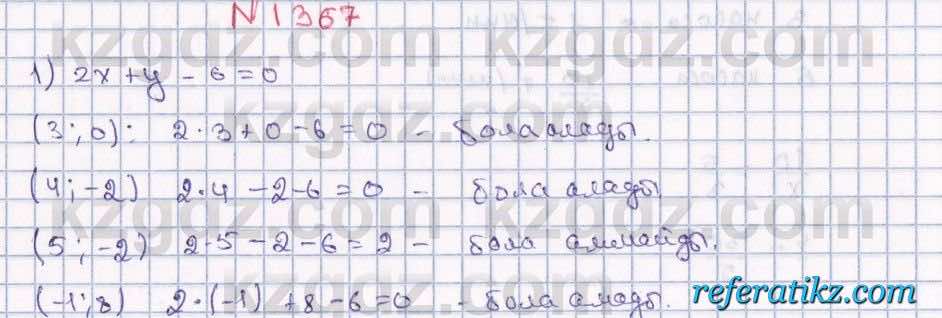 N 1367
kzgdz.com kzgdz.com
1) 2x + y - 6 = 0
(3; 0): 2·3+0-6=0 - бола алады.
(4; -2) 2·4-2-6=0 - бола алады.
kzgdz.com kzgdz.com
(5; -2) 2·5-2-6=2 - бола алмайды.
(-1; 8) 2·(-1)+8-6=0 - бола алады.
referatikz.com